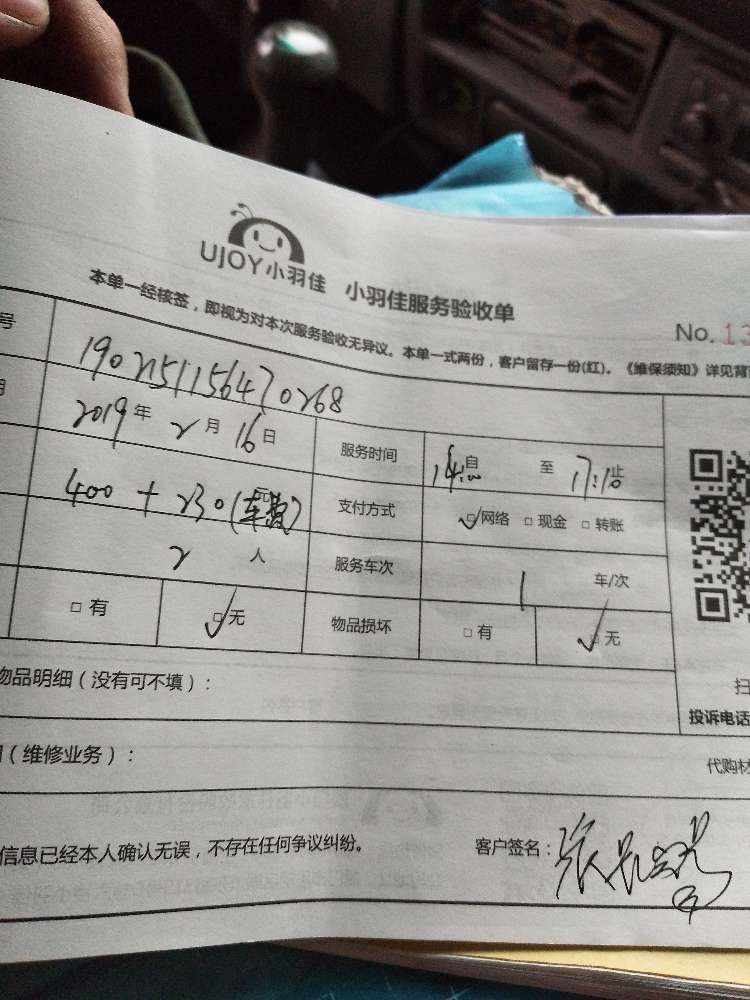 UJOY小羽佳 小羽佳服务验收单
本单一经核签，即视为对本次服务验收无异议。本单一式两份，客户留存一份(红)。《维保须知》详见背
No.13
号 1902151156470268
2019年2月16日 服务时间 14:00自 至 17:10止
400+230(车费) 元 支付方式 ☑网络 □现金 □转账
2人 服务车次 1 车/次
□有 ☑无 物品损坏 □有 ☑无
扫
物品明细（没有可不填）：
投诉电话
（维修业务）：
代购材
信息已经本人确认无误，不存在任何争议纠纷。 客户签名：